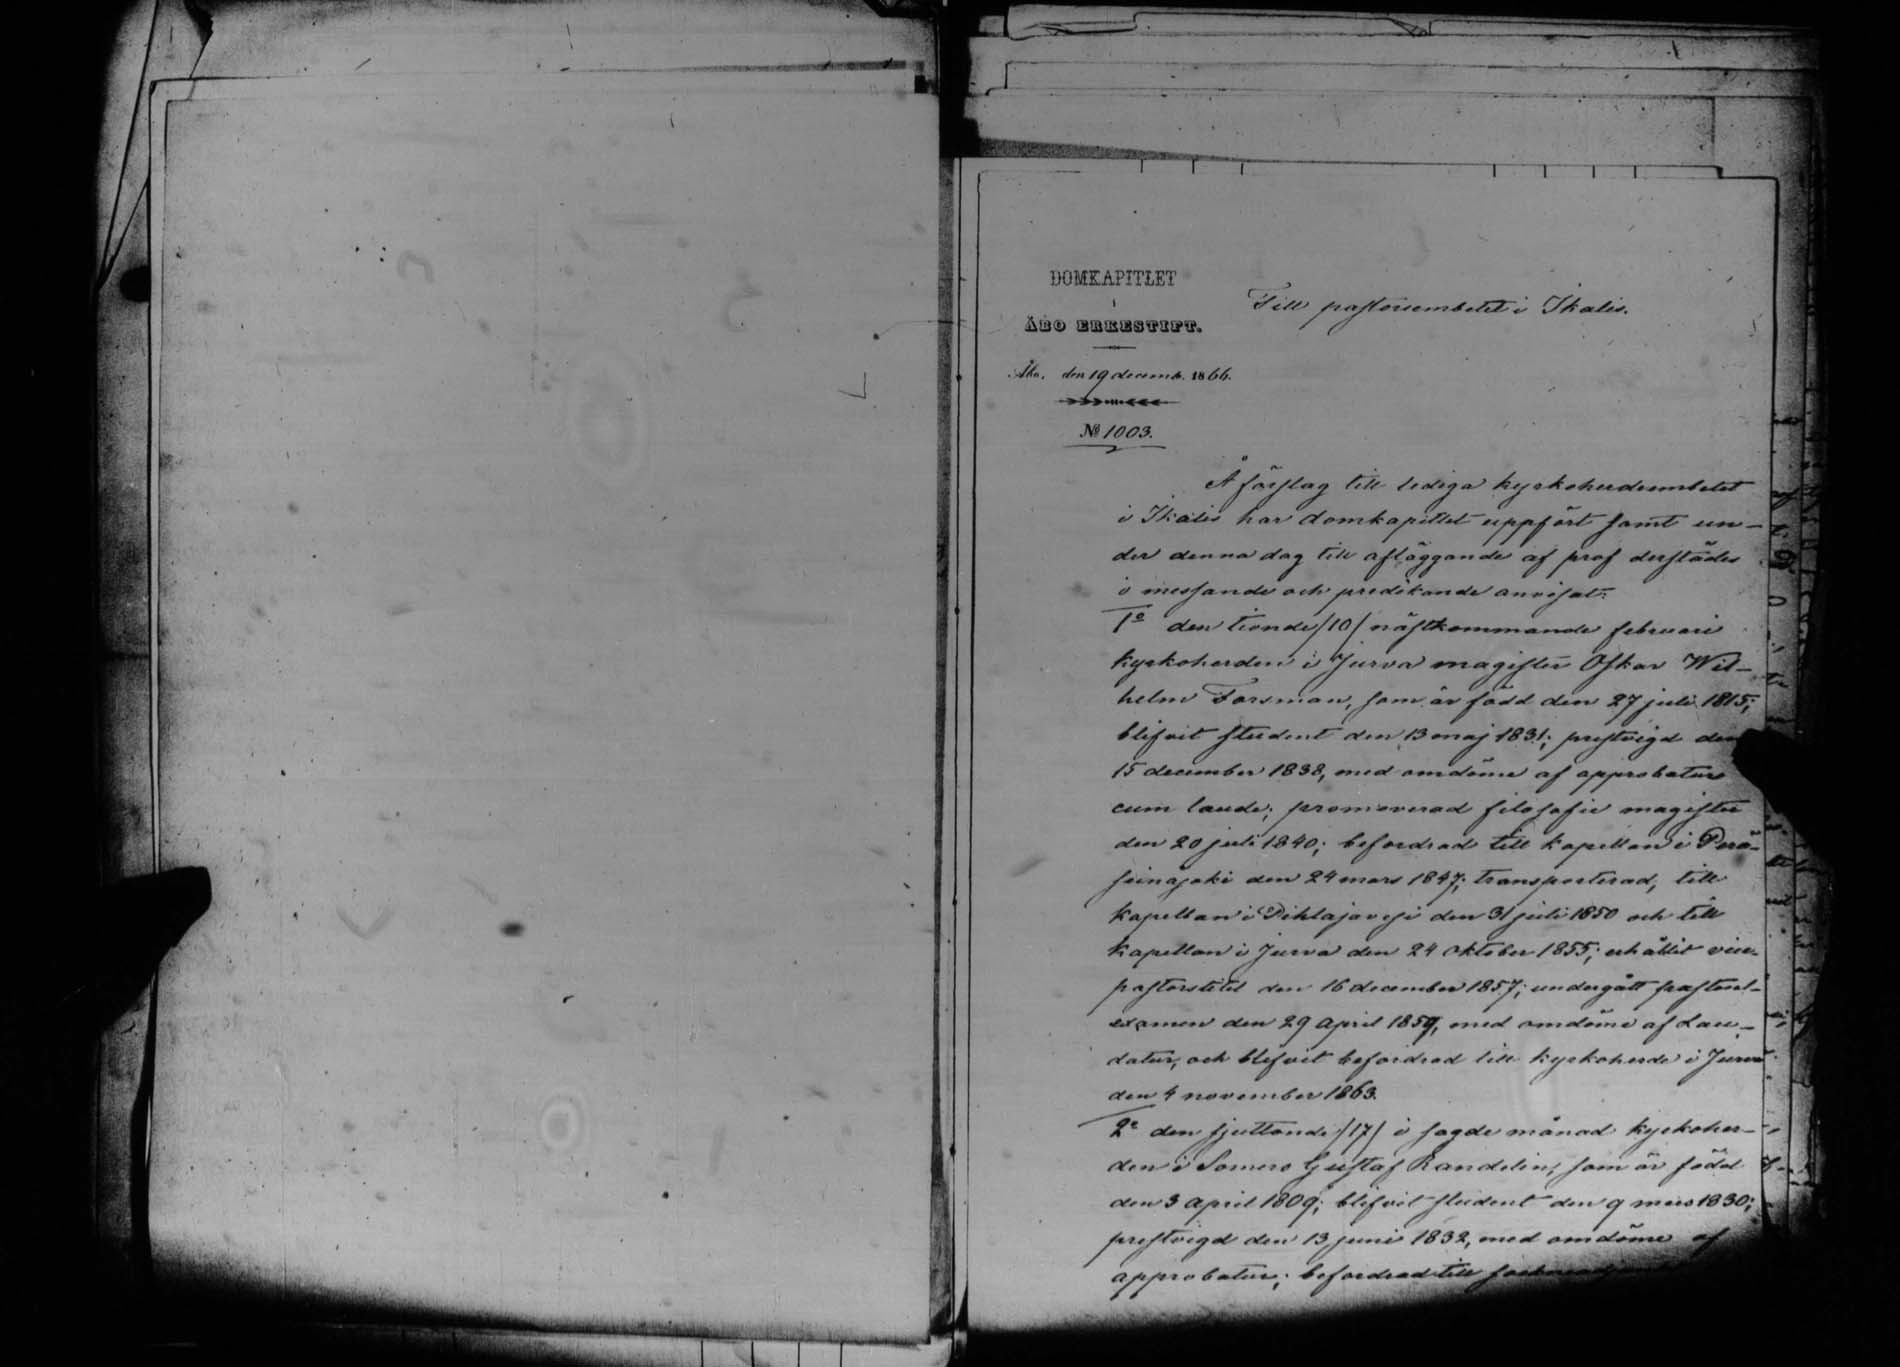 DOMKAPITLET
i
ÅBO ERKESTIFT.
Åbo, den 19 decemb. 1866.
№ 1003.
Till pastorsembetet i Ikalis.
Å förslag till lediga kyrkoherdeembetet
i Ikalis har domkapitlet uppfört samt un-
der denna dag till afläggande af prof derstädes
i messande och predikande anvisat:
1o den tionde /10/ nästkommande februari
kyrkoherden i Jurva magister Oskar Wil-
helm Forsman, som är född den 27 juli 1815;
blifvit student den 13 maj 1831; prestvigd den
15 december 1838, med omdöme af approbatur
cum laude; promoverad filosofie magister
den 20 juli 1840; befordrad till kapellan i Perä-
seinäjoki den 24 mars 1847; transporterad, till
kapellan i Pihlajavesi den 31 juli 1850 och till
kapellan i Jurva den 24 oktober 1855; erhållit vice-
pastorstitel den 16 december 1857; undergått pastoral-
examen den 29 april 1859, med omdöme af Lau-
datur, och blifvit befordrad till kyrkoherde i Jurva
den 4 november 1863.
2o den sjuttonde /17/ i sagde månad kyrkoher-
den i Somero Gustaf Randelin, som är född
den 3 april 1809; blifvit student den 9 mars 1830;
prestvigd den 13 juni 1832, med omdöme af
approbatur; befordrad till